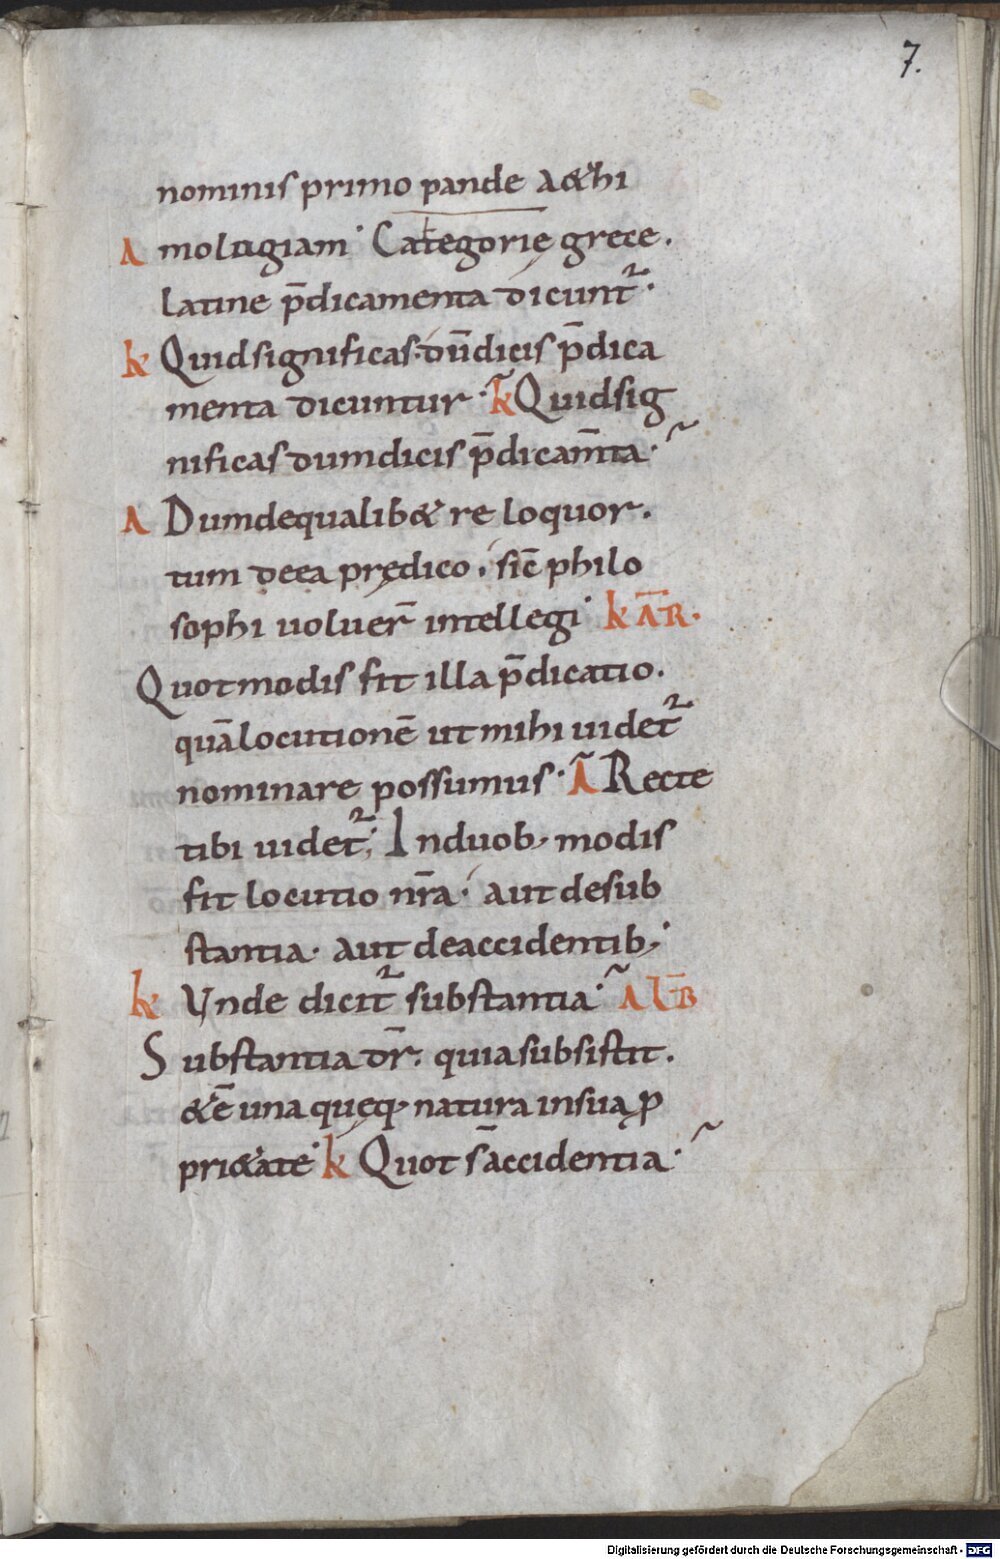 7.
nominis primo pande a&hi
A molugiam· Categorię grece.
latine p̄dicamenta dicunt᷑·
k Quid significas· dū dicis p̄dica
menta dicuntur· k Quid sig
nificas dum dicis p̄dicam̄ta·
A Dum de qualib& re loquor.
tum de ea prędico. sic̄ philo
sophi uoluer̄ intellegi· k AR·
Quot modis fit illa p̄dicatio.
quā locutionē ut mihi uidet᷑
nominare possumus· A Recte
tibi uidet᷑; In duob; modis
fit locutio nr̄a· aut de sub
stantia· aut de accidentib;
k Unde dicit᷑ substantia· A LB
Substantia dr̄. quia subsistit.
& ē una quęq; natura in sua p̱ro
pri&ate· k Quot s̄ accidentia·
Digitalisierung gefördert durch die Deutsche Forschungsgemeinschaft - DFG